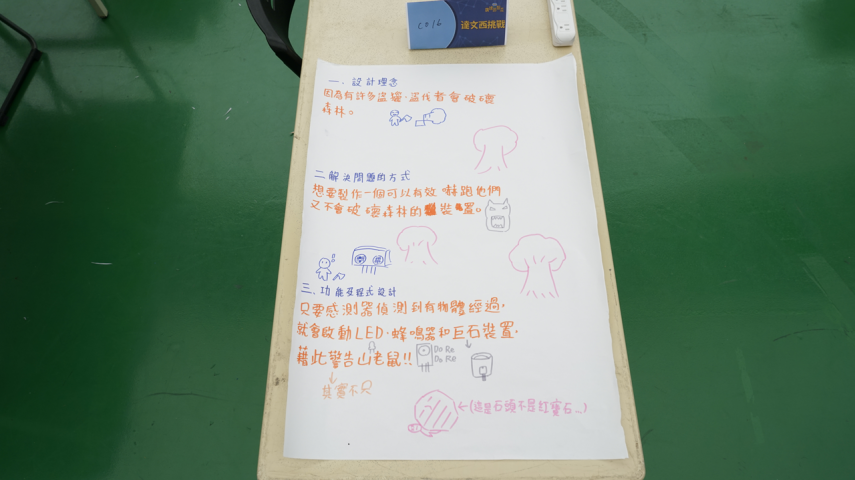 C016
達文西挑戰
一、設計理念
因為有許多盜獵、盜伐者會破壞
森林。
二解決問題的方式
想要製作一個可以有效嚇跑他們
又不會破壞森林的裝置。
三、功能及程式設計
只要感測器偵測到有物體經過,
就會啟動LED、蜂鳴器和巨石裝置,
藉此警告山老鼠!!
Do Re
Do Re
其實不只
←(這是石頭不是紅寶石~)